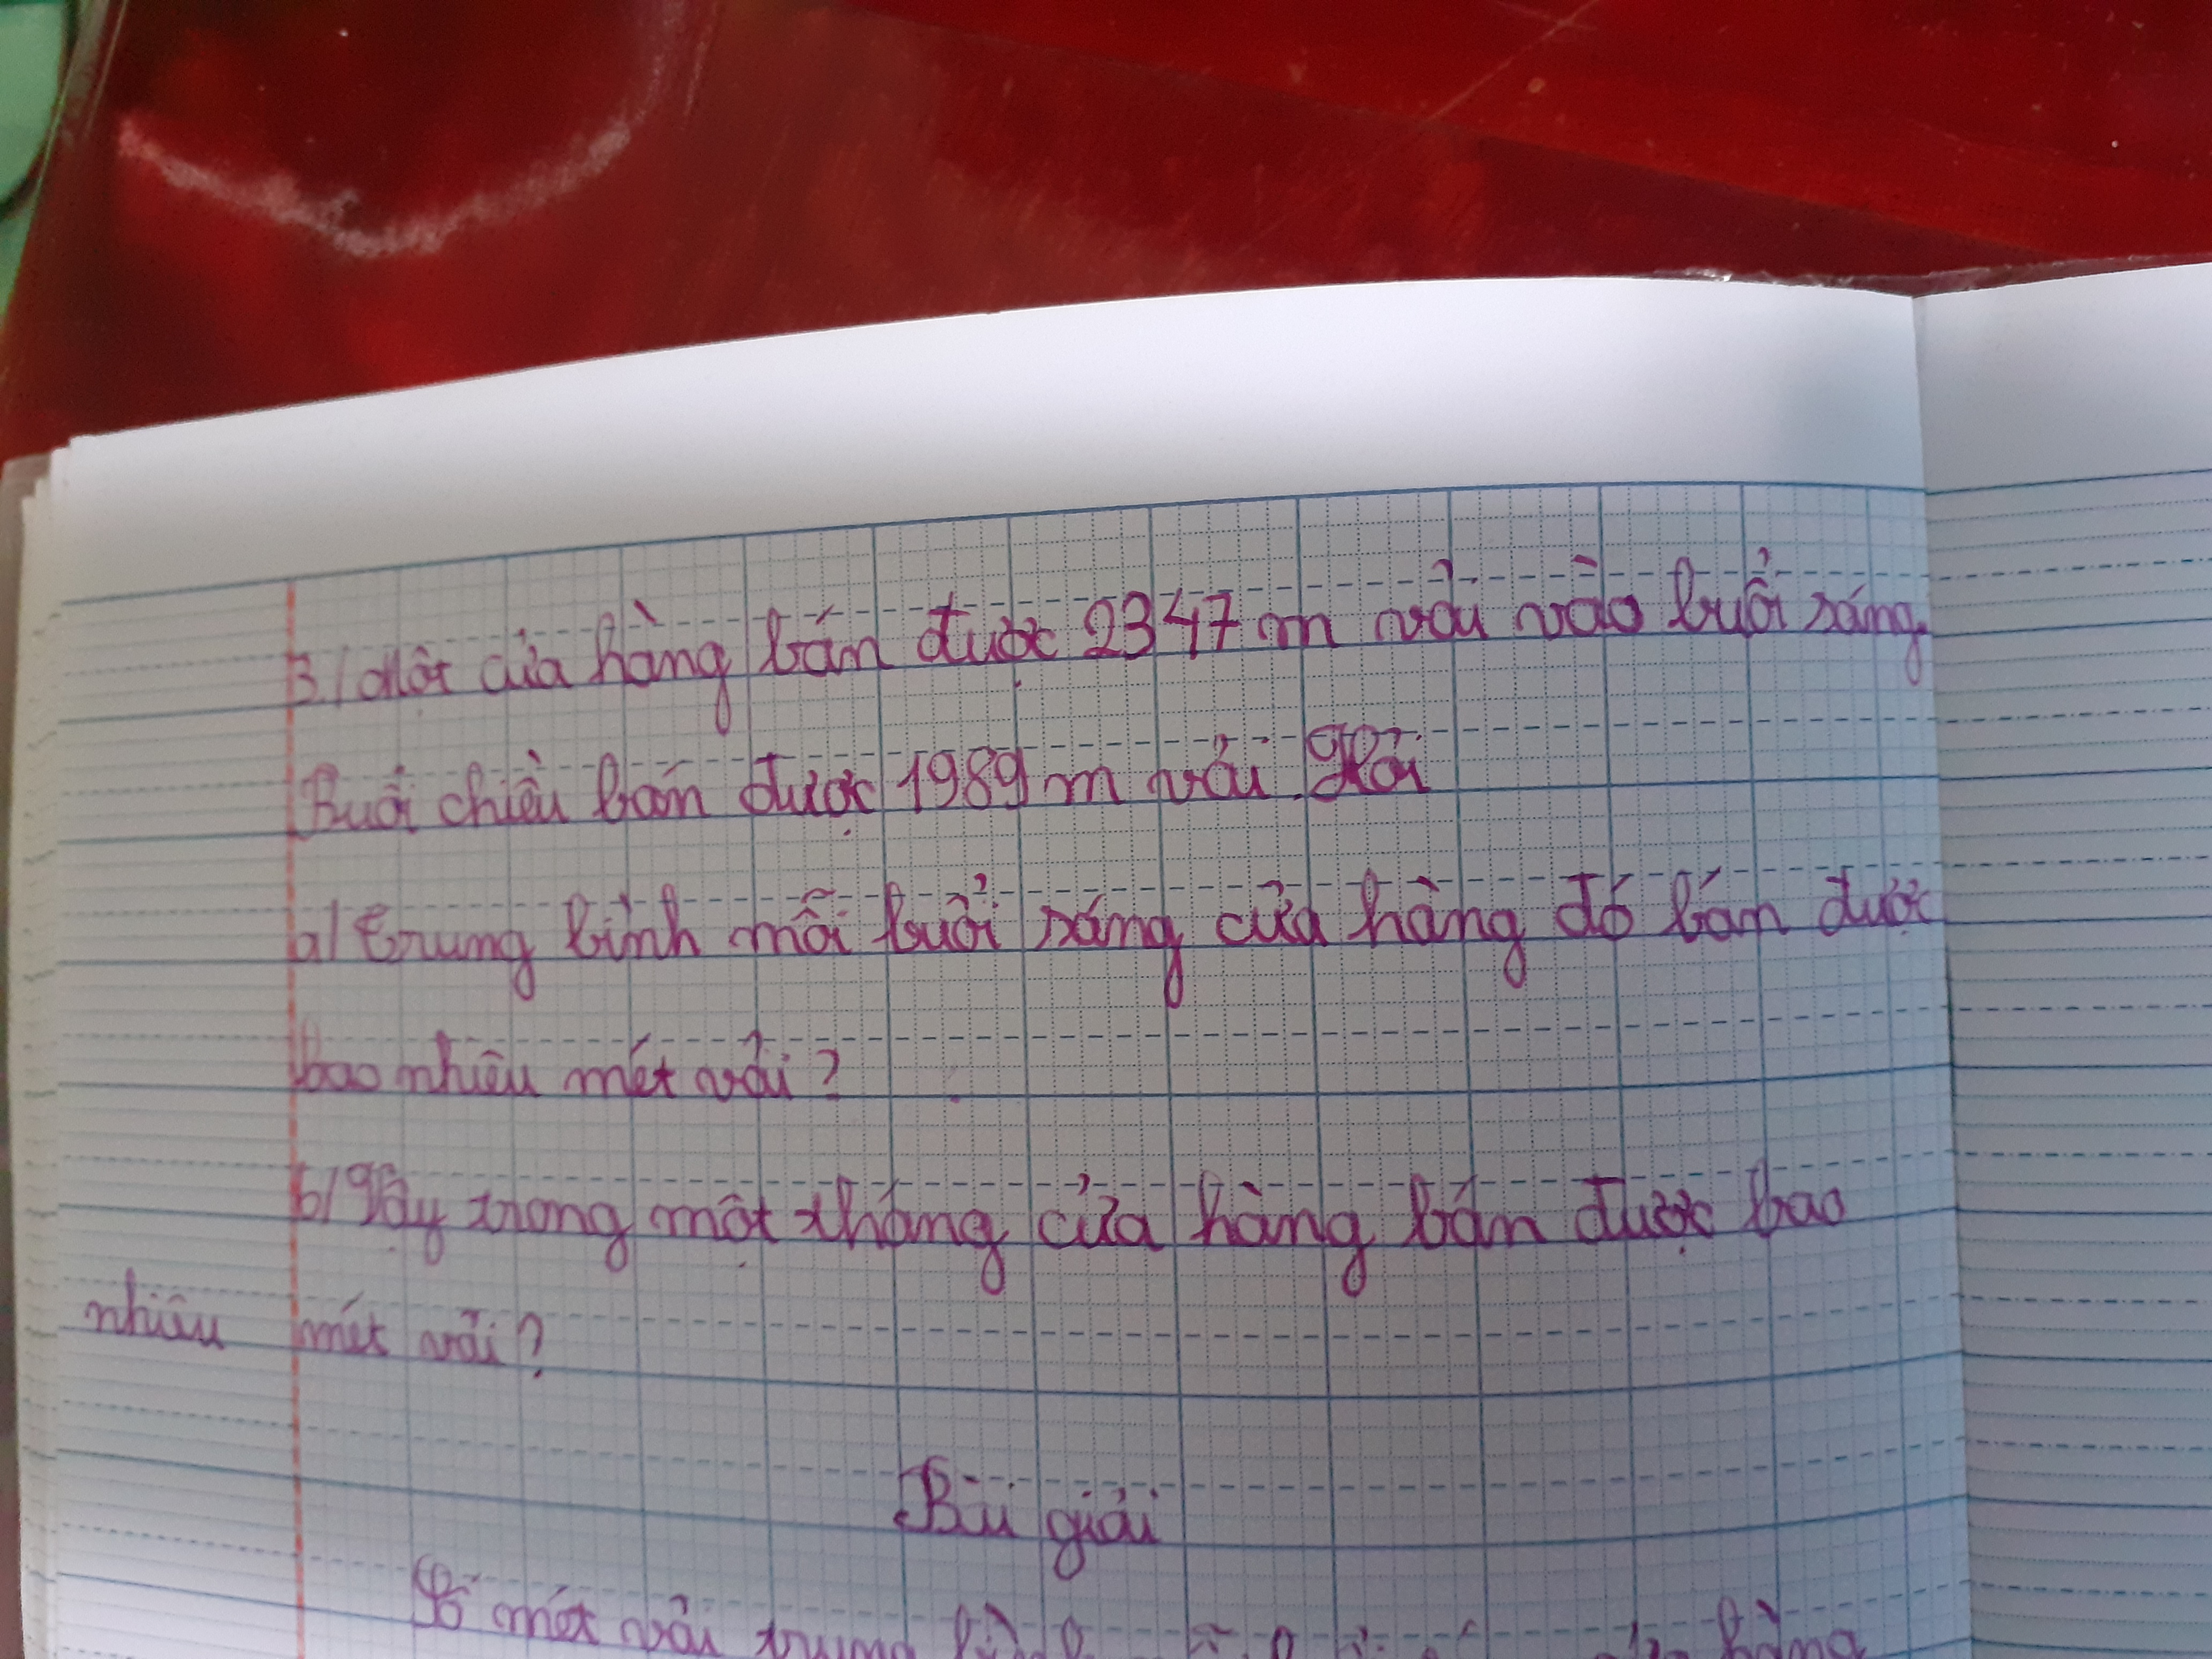 3/ Một cửa hàng bán được 2347 m vải vào buổi sáng.
Buổi chiều bán được 1989 m vải. Hỏi
a/ Trung bình mỗi buổi sáng cửa hàng đó bán được
bao nhiêu mét vải?
b/ Vậy trong một tháng cửa hàng bán được bao
nhiêu mét vải?
Bài giải
Số mét vải trung hàng